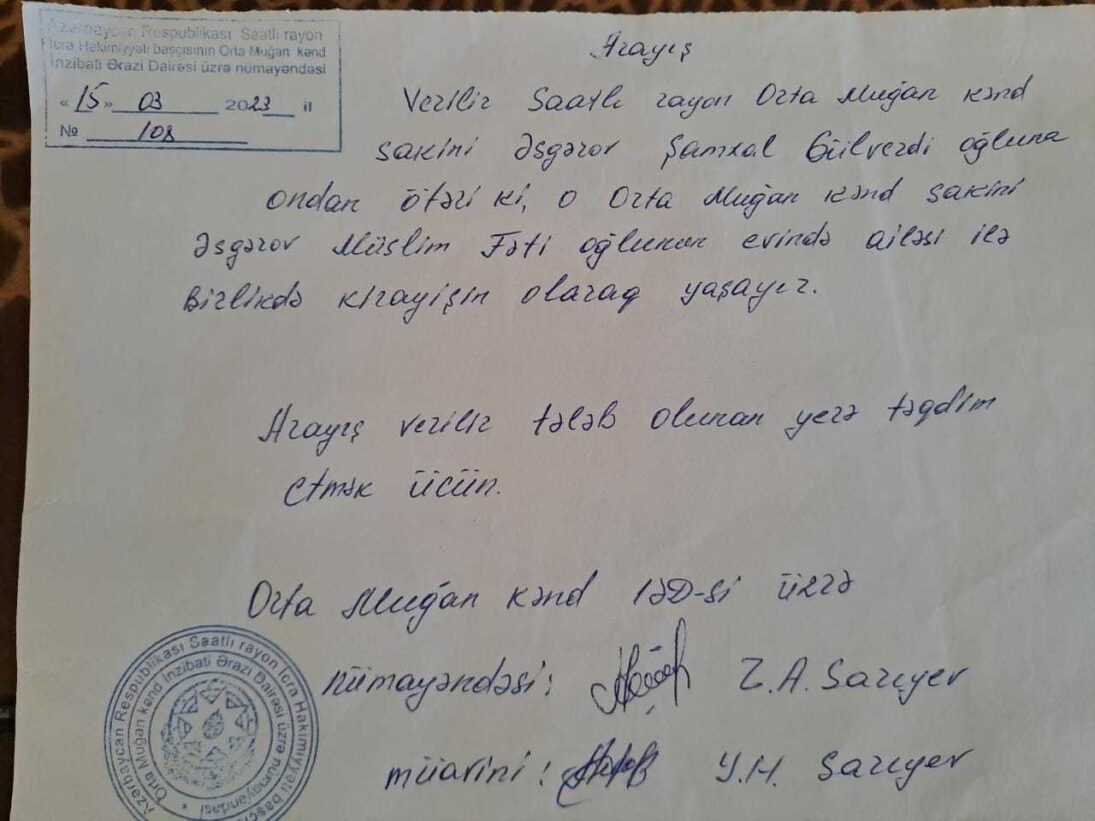 Azərbaycan Respublikası Saatlı rayon
İcra Hakimiyyəti başçısının Orta Muğan kənd
İnzibati Ərazi Dairəsi üzrə nümayəndəsi
«15» 03 2023 il
№ 108
Arayış
Verilir Saatlı rayon Orta Muğan kənd
sakini Əsgərov Şamxal Gülverdi oğluna
ondan ötəri ki, o Orta Muğan kənd sakini
Əsgərov Müslim Fəti oğlunun evində ailəsi ilə
Birlikdə kirayişin olaraq yaşayır.
Arayış verilir tələb olunan yerə təqdim
etmək üçün.
Orta Muğan kənd İƏD-si üzrə
nümayəndəsi: Z.A. Sarıyev
müavini: Y.H. Sarıyev
Azərbaycan Respublikası Saatlı rayon İcra Hakimiyyəti
Orta Muğan kənd İnzibati Ərazi Dairəsi üzrə nümayəndəsi